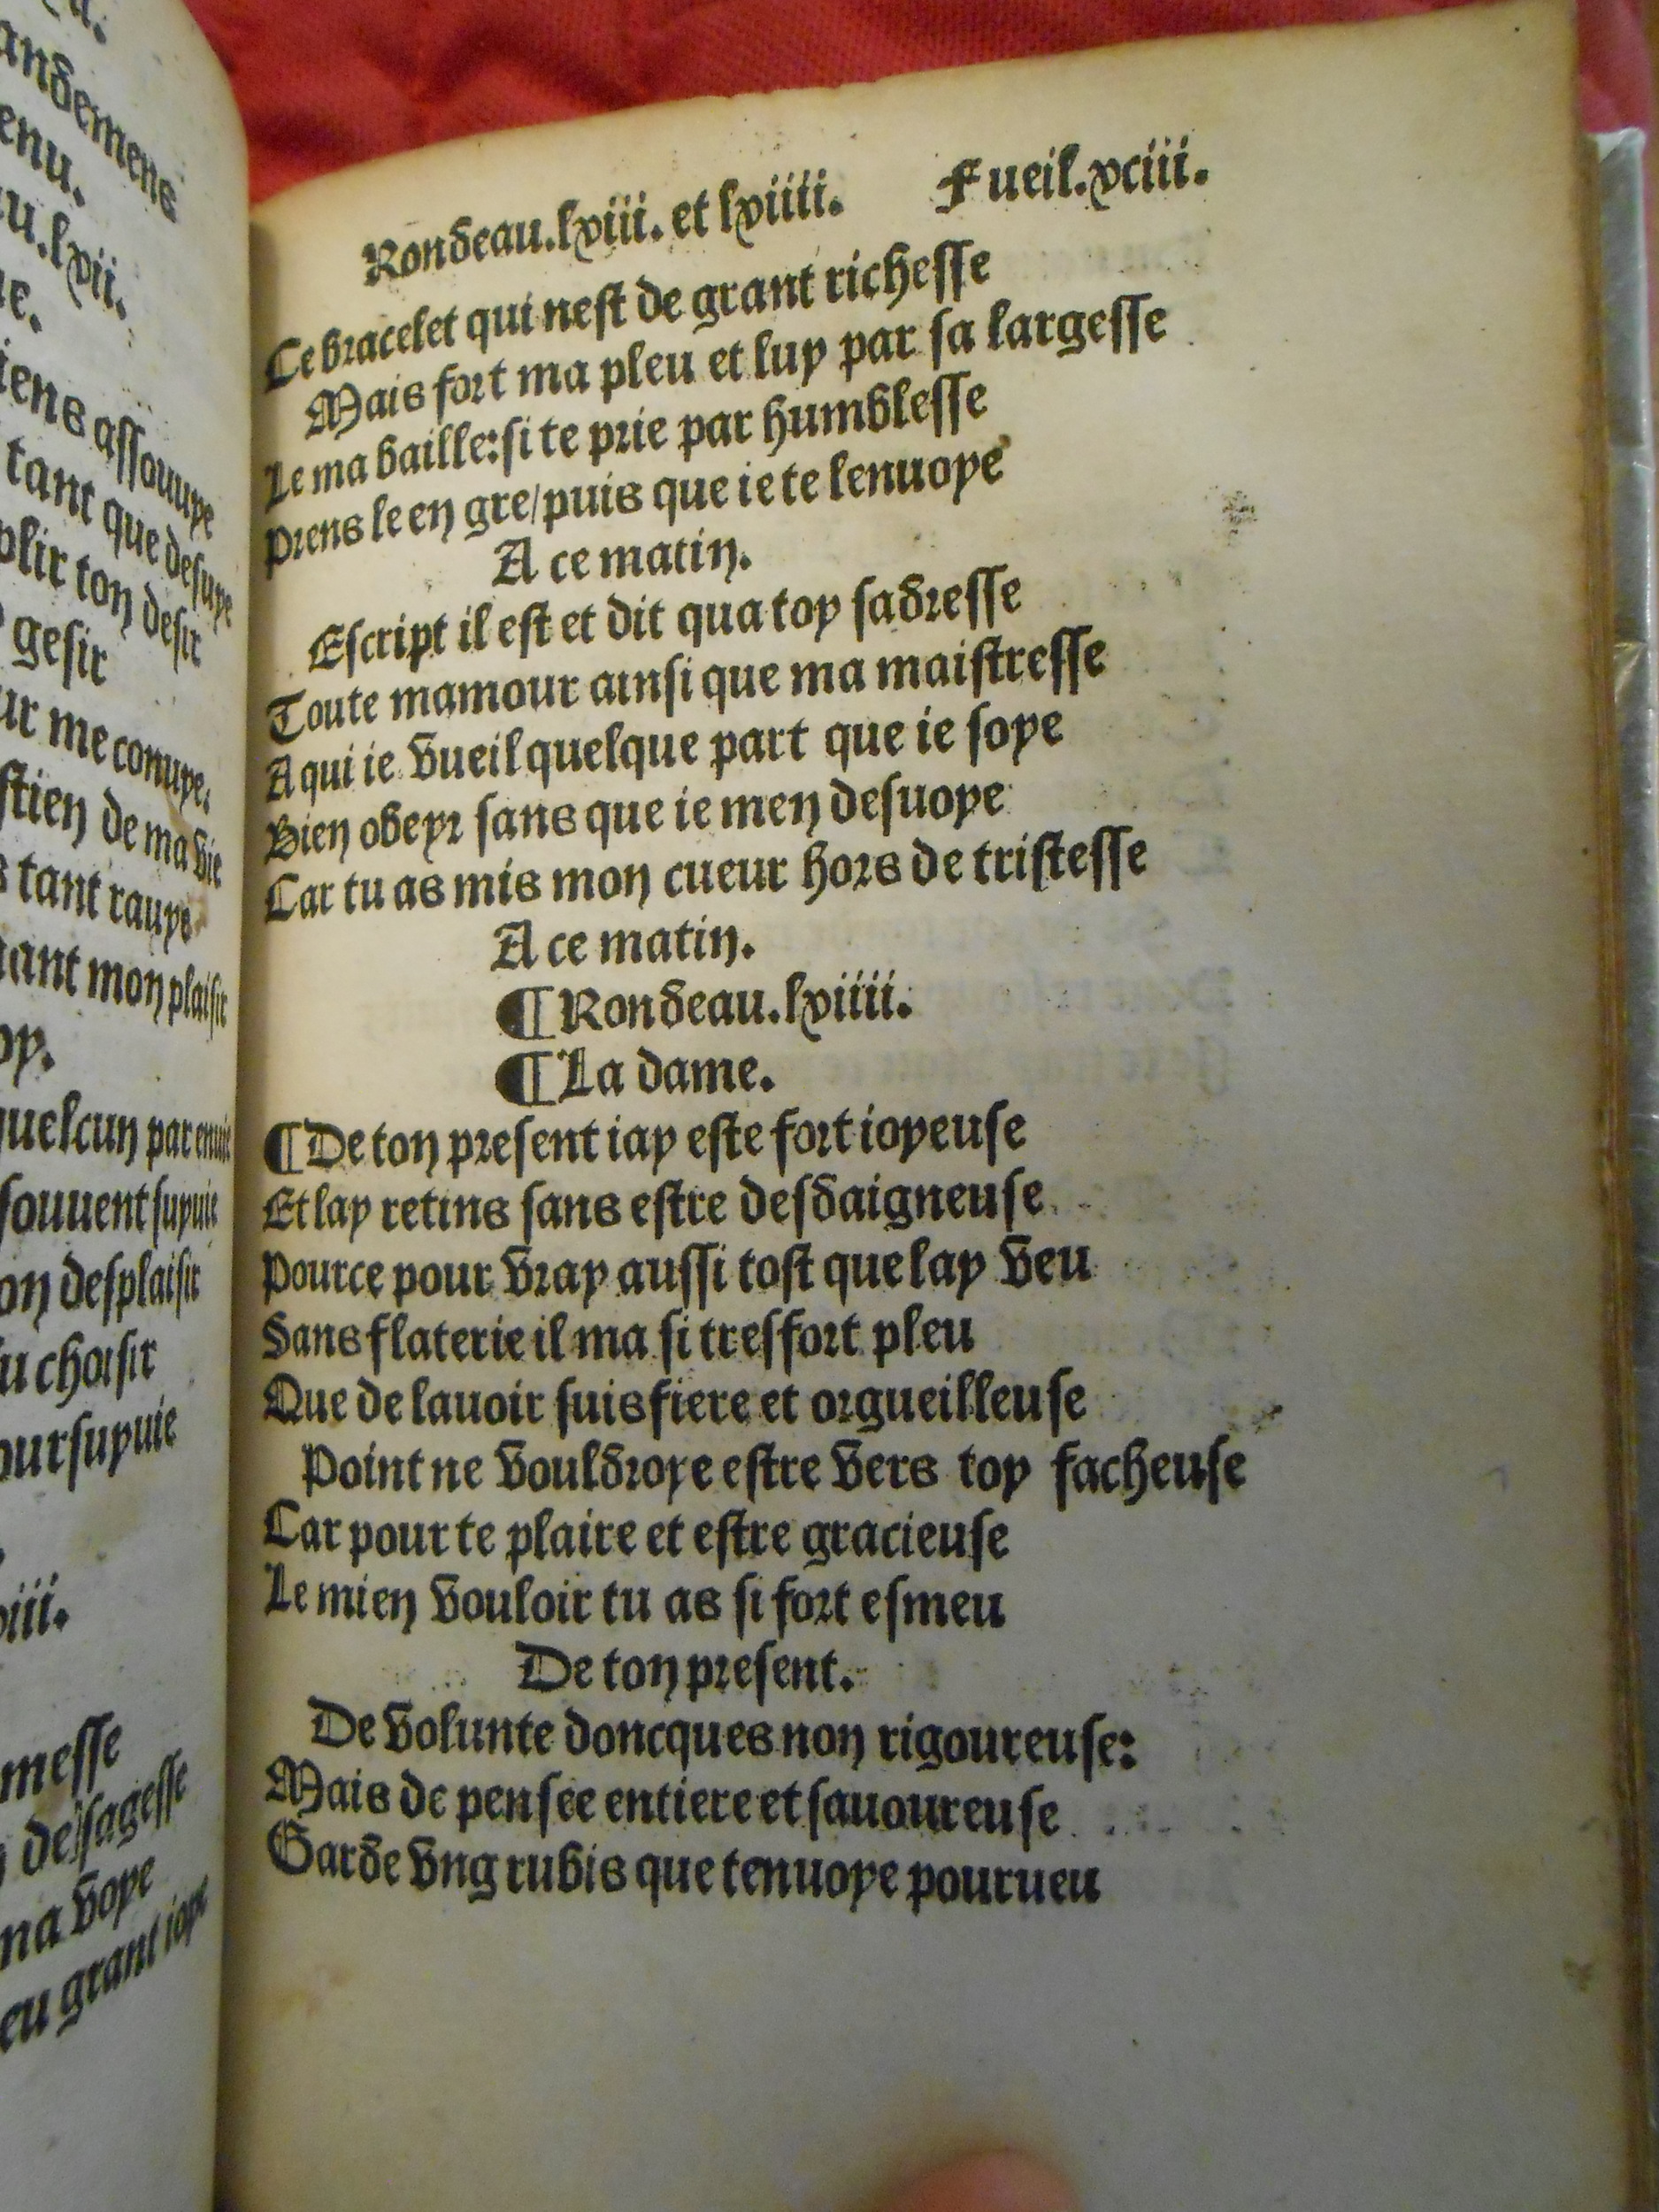 andemens
enu.
u.lxii.
e.
iens assouuye
tant que desuye
plir ton desir
gesir
ur me conuye.
stien de ma vie
s tant rauye
ant mon plaisir
oy.
quelcun par enuie
souuent suyuie
on desplaisir
u choisir
oursuyuie
iii.
messe
de sagesse
ma voye
eu grant ioye
Rondeau.lxiii. et lxiiii. Fueil.xciii.
Ce bracelet qui nest de grant richesse
Mais fort ma pleu et luy par sa largesse
Le ma baille:si te prie par humblesse
Prens le en gre/puis que ie te lenuoye
A ce matin.
Escript il est et dit qua toy sadresse
Toute mamour ainsi que ma maistresse
A qui ie vueil quelque part que ie soye
Bien obeyr sans que ie men desuoye
Car tu as mis mon cueur hors de tristesse
A ce matin.
¶Rondeau.lxiiii.
¶La dame.
¶De ton present iay este fort ioyeuse
Et lay retins sans estre desdaigneuse
Pource pour vray aussi tost que lay veu
Sans flaterie il ma si tresfort pleu
Que de lauoir suis fiere et orgueilleuse
Point ne vouldroye estre vers toy facheuse
Car pour te plaire et estre gracieuse
Le mien vouloir tu as si fort esmeu
De ton present.
De volunte doncques non rigoureuse:
Mais de pensee entiere et sauoureuse
Garde vng rubis que tenuoye pourueu